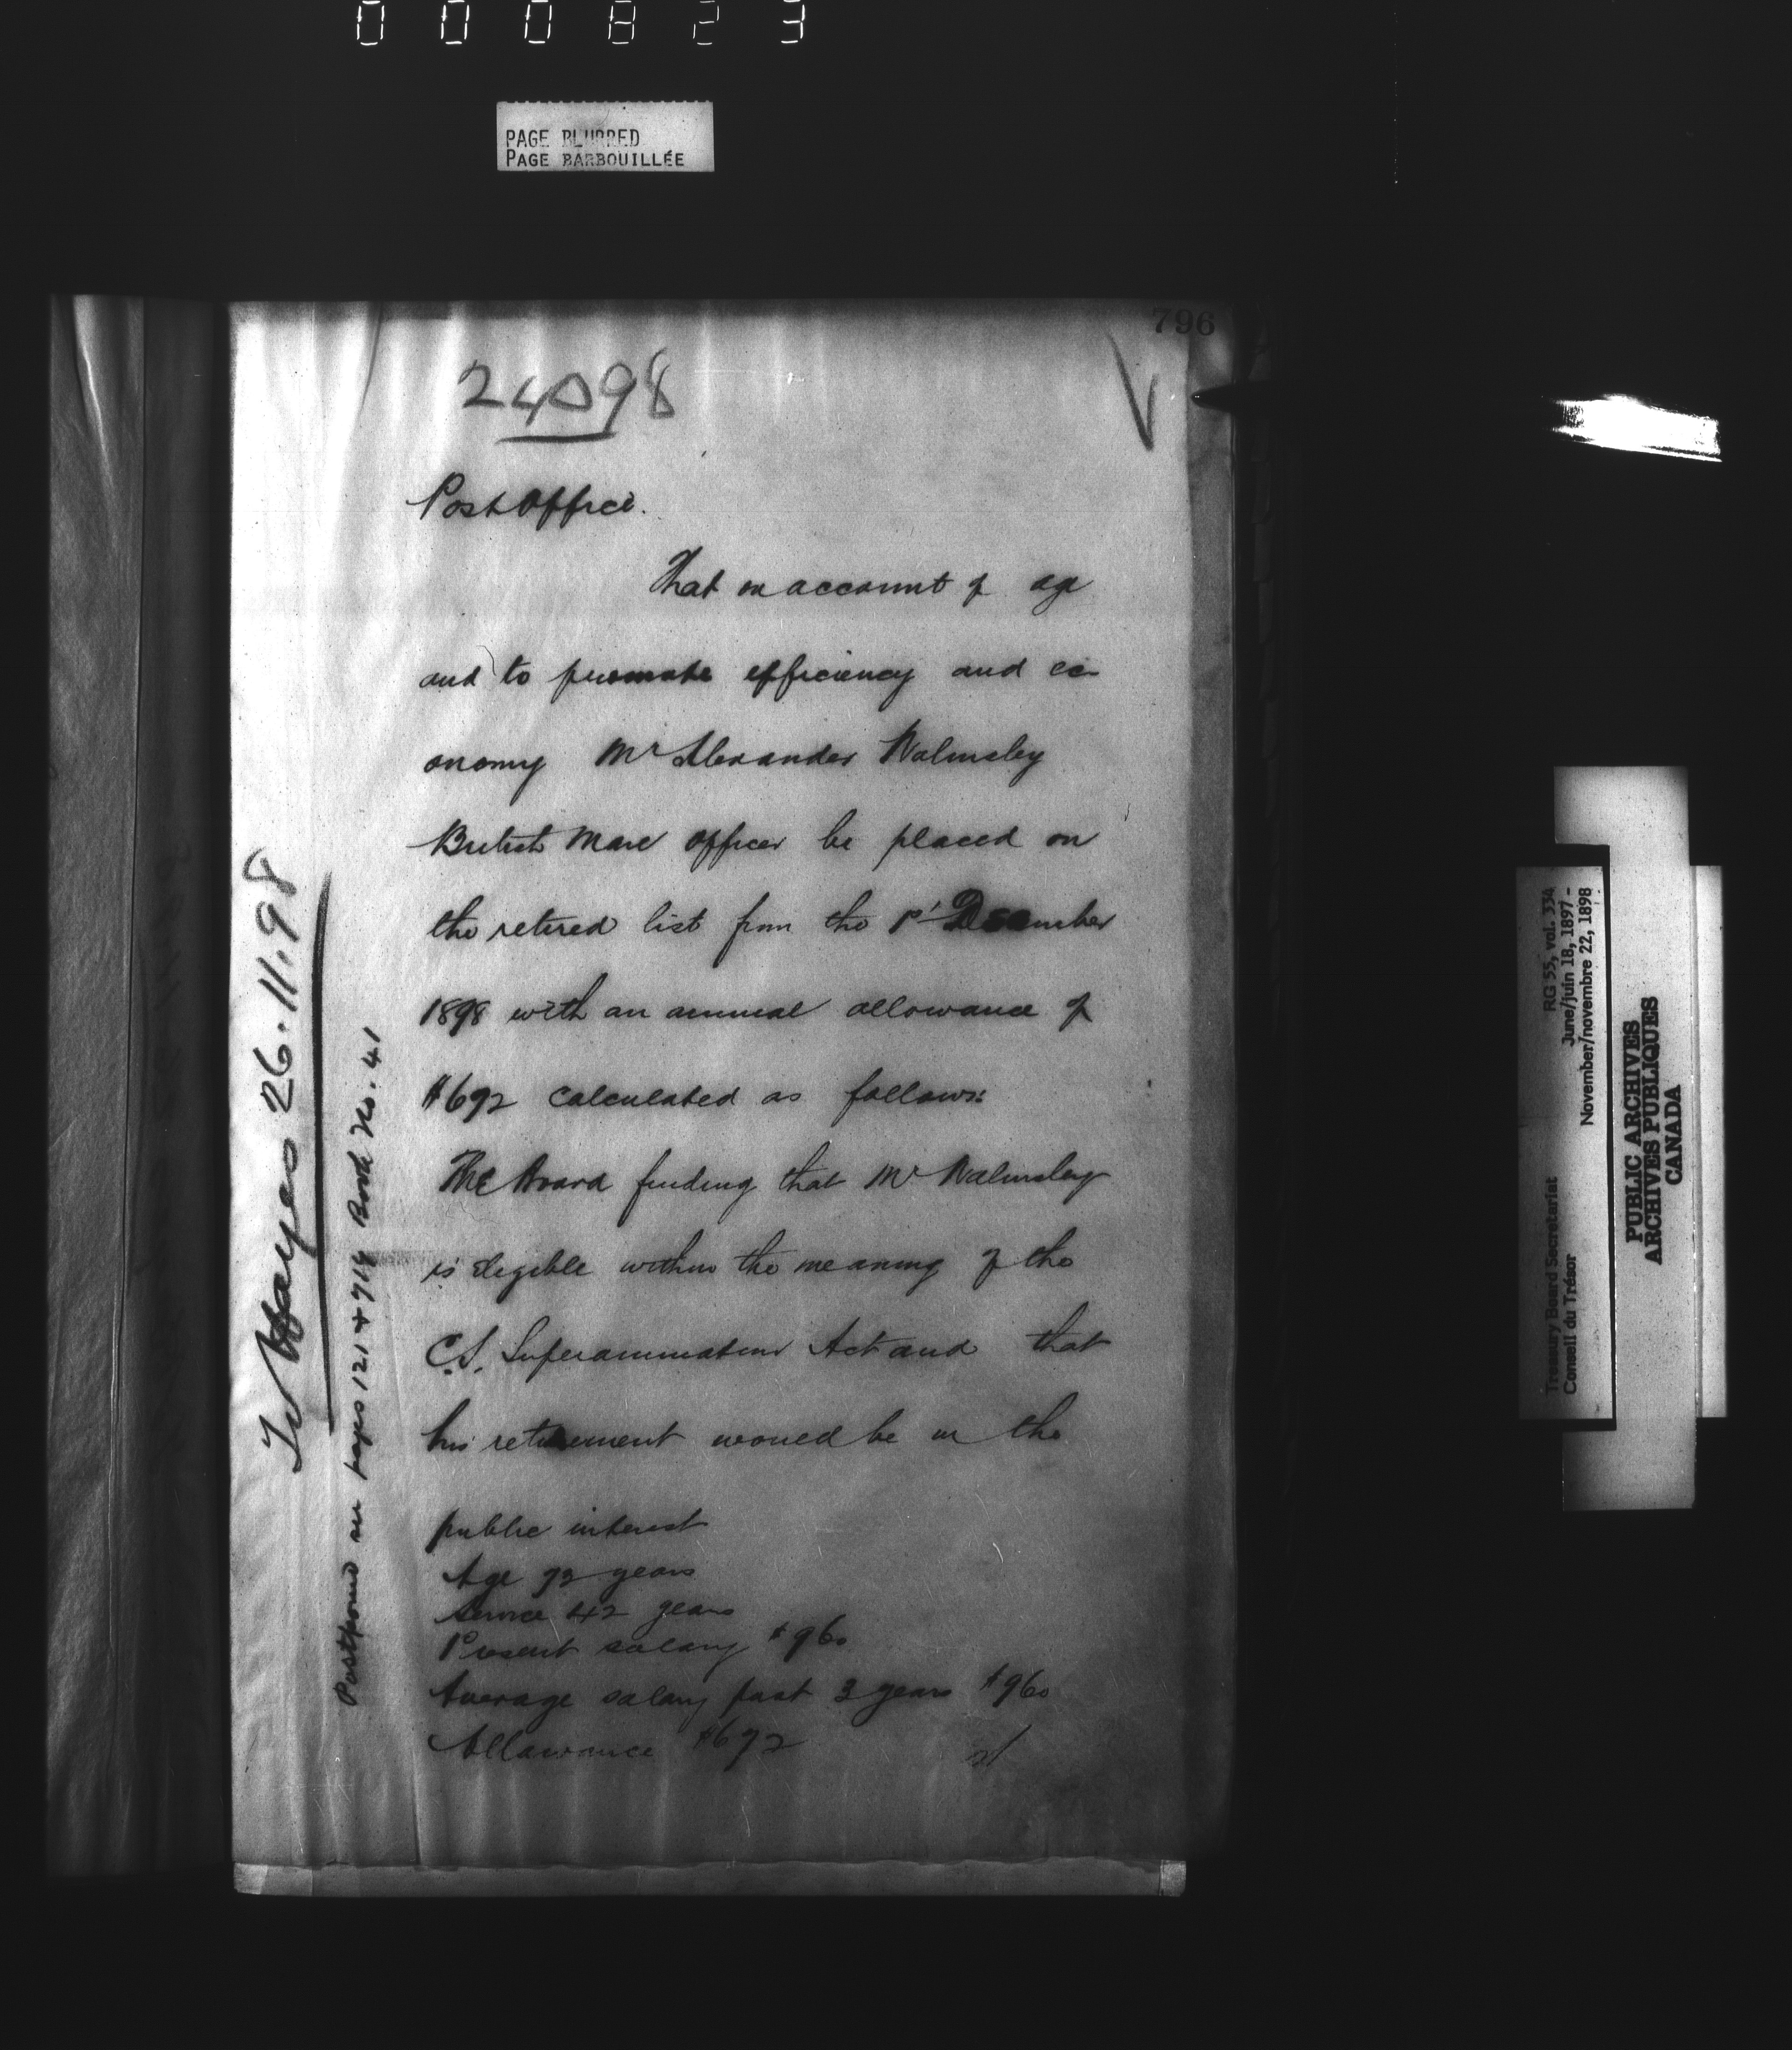 000823
PAGE BLURRED
PAGE BARBOUILLÉE
796
24098
Post Office.
That on account of age
and to promote efficiency and ec-
onomy Mr Alexander Walmsley
British Mail Officer be placed on
the retired list from the 1st December
1898 with an annual allowance of
$672 calculated as follows:
The Board finding that Mr Walmsley
is eligible within the meaning of the
C.S. Superannuation Act and that
his retirement would be in the
public interest
Age 73 years
Service 42 years
Present salary $960
Average salary past 3 years $960
Allowance $672
Hayes 26.11.98
Postponed see pages 121 + 714 Book No. 41
Treasury Board Secretariat RG 55, vol. 334
Conseil du Trésor June/juin 18, 1897-
November/novembre 22, 1898
PUBLIC ARCHIVES
ARCHIVES PUBLIQUES
CANADA